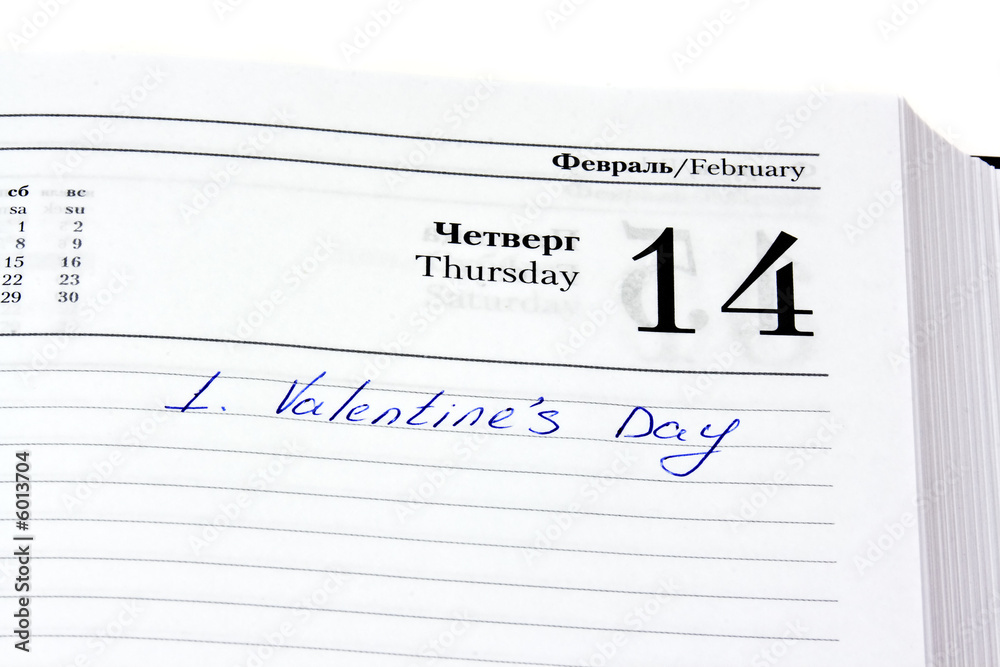 Февраль/February
сб вс
sa su
1 2
8 9
15 16
22 23
29 30
Четверг
Thursday
14
1. Valentine's Day
Adobe Stock | #6013704